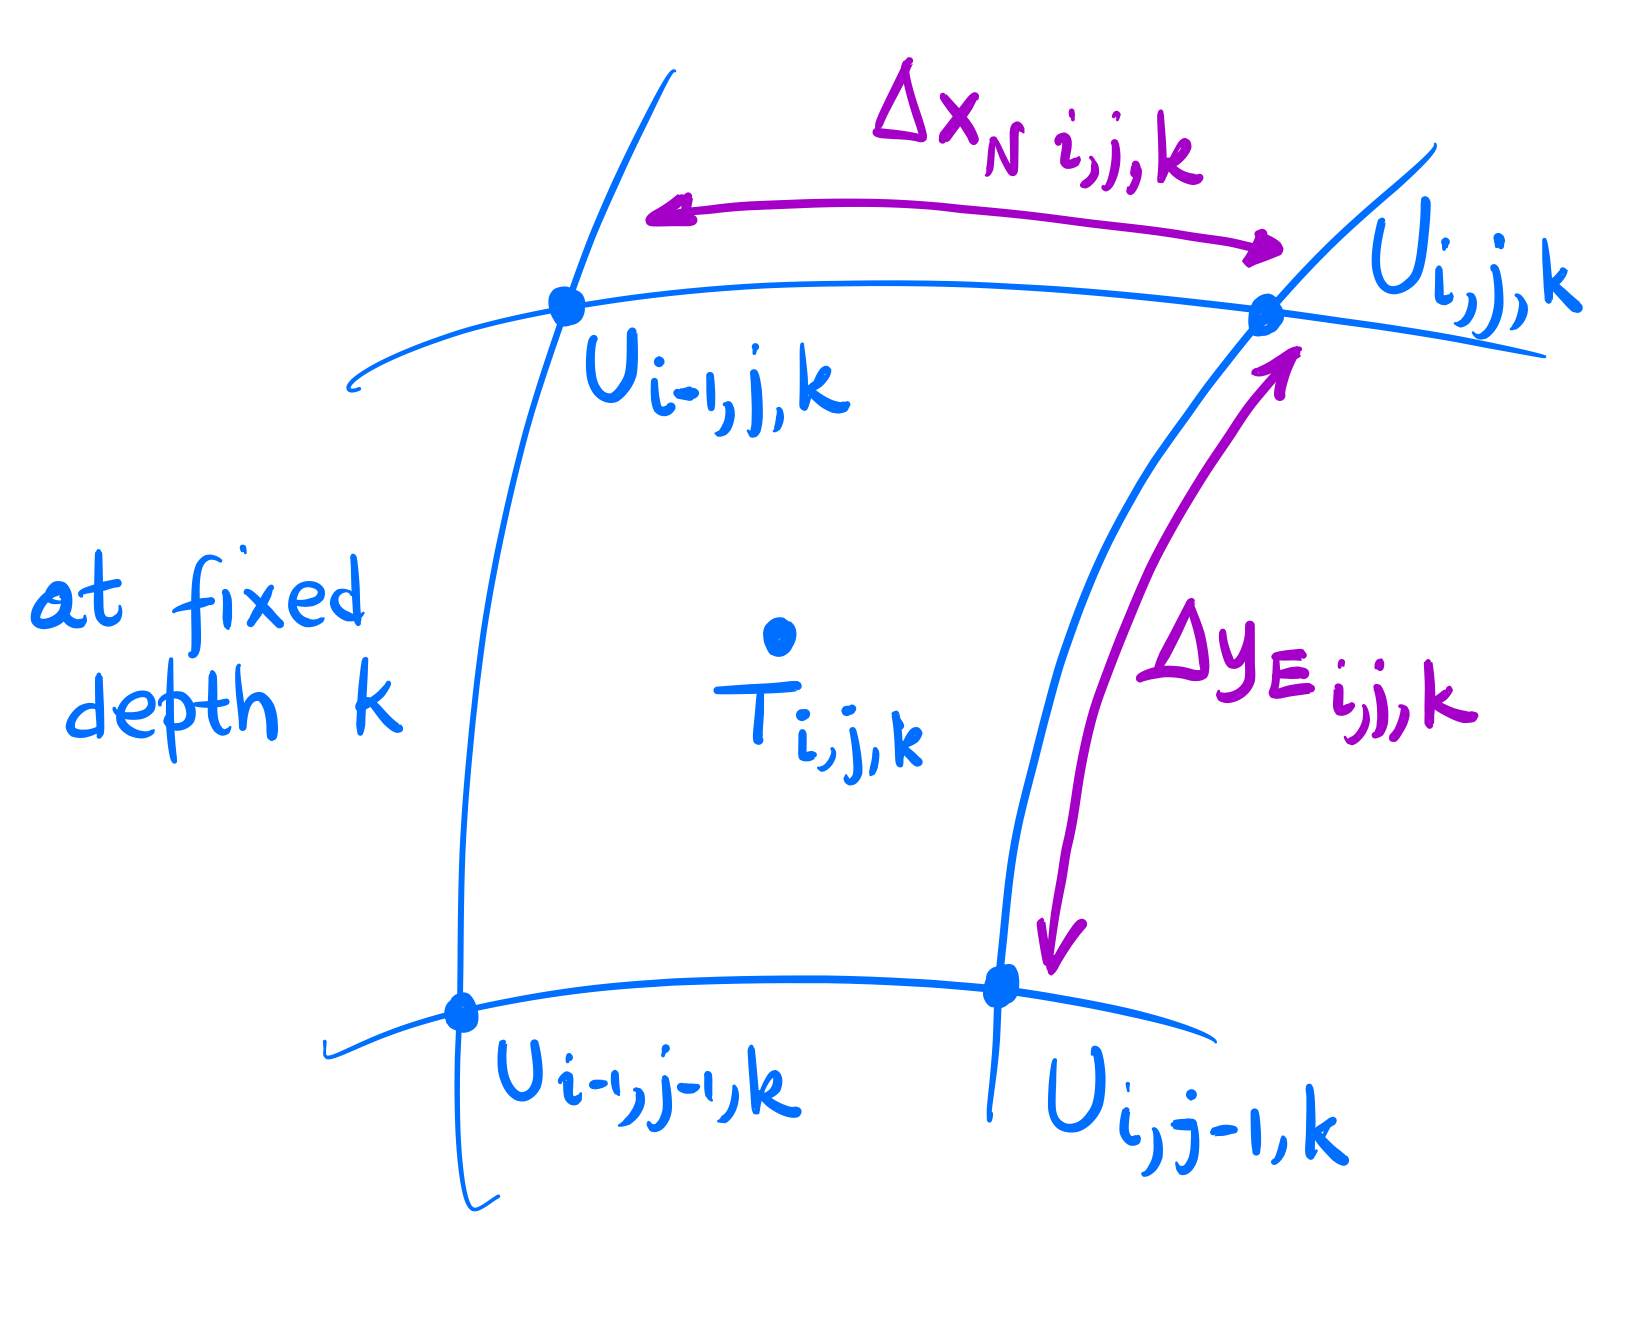 Δx_N i,j,k
U_i,j,k
U_i-1,j,k
at fixed
depth k
T_i,j,k
Δy_E i,j,k
U_i-1,j-1,k
U_i,j-1,k